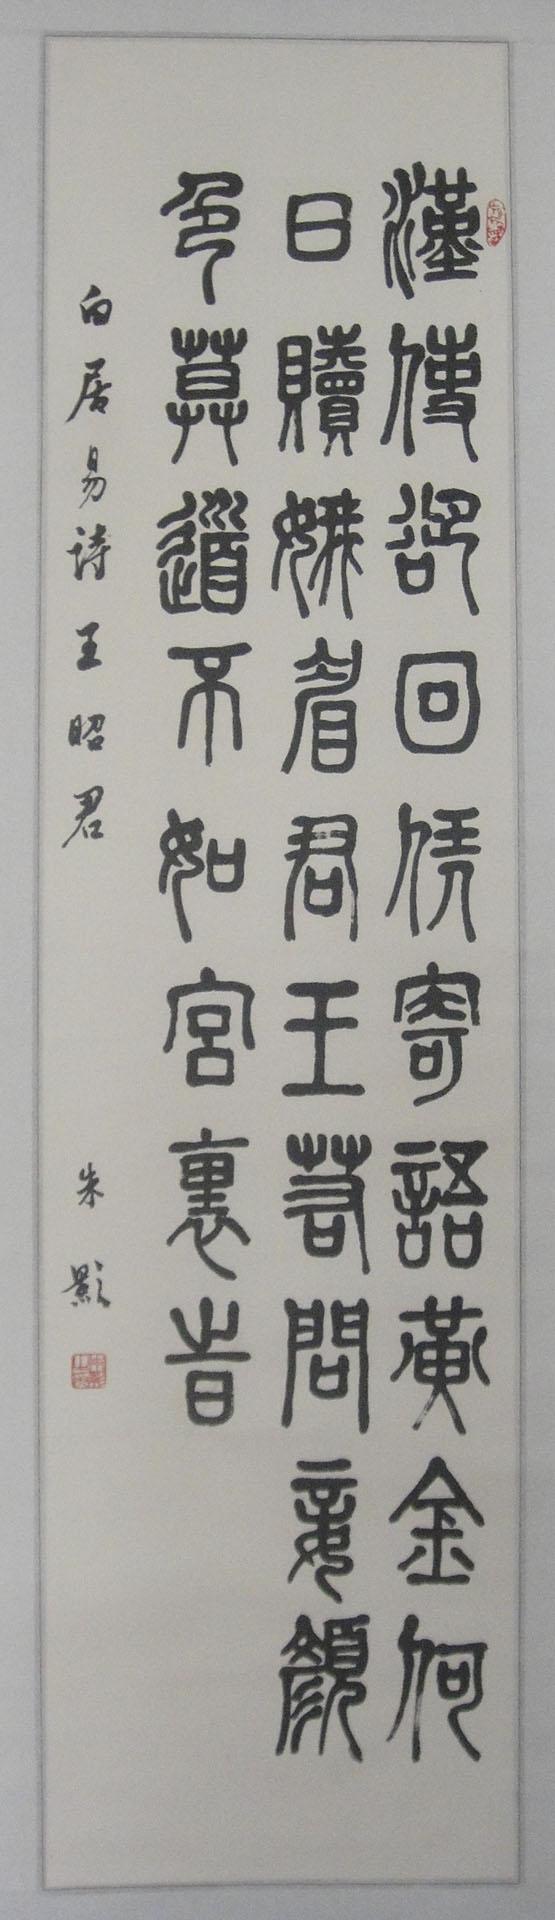 漢使卻回憑寄語黃金何
日贖娥眉君王若問妾顏
色莫道不如宮裏時
白居易詩王昭君
朱影